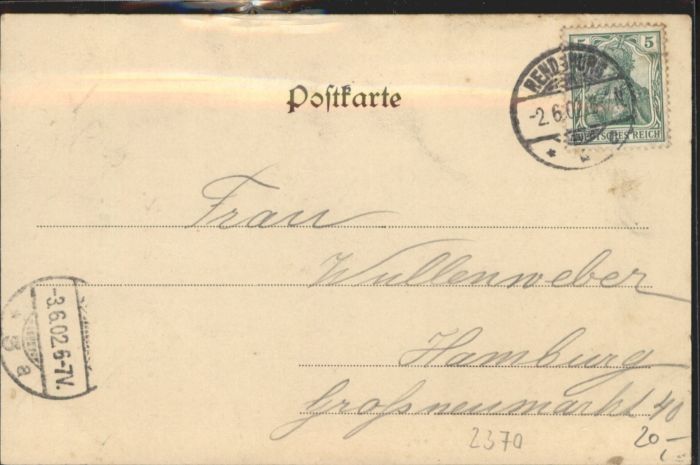 5 5
DEUTSCHES REICH
RENDSBURG
-2.6.02
Postkarte
Frau
Wullenweber
Hamburg
Grossneumarkt 40
-3.6.02.6-7V.
3
a
2370
20,-